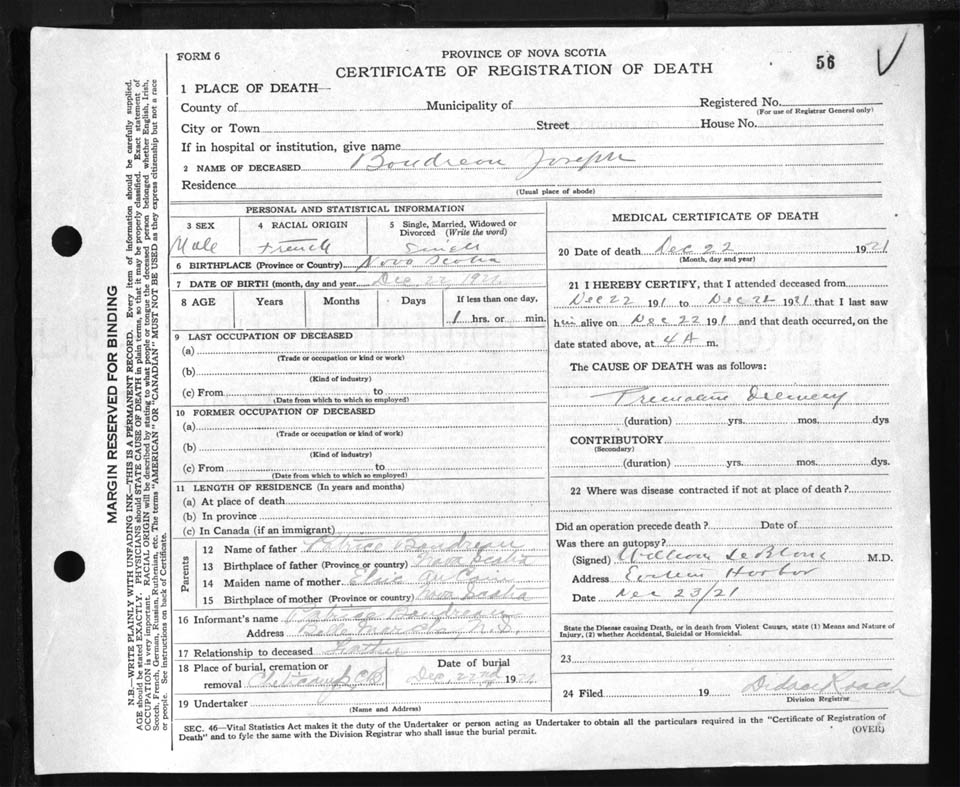 FORM 6
PROVINCE OF NOVA SCOTIA
CERTIFICATE OF REGISTRATION OF DEATH
56
1 PLACE OF DEATH—
County of Municipality of Registered No.
(For use of Registrar General only)
City or Town Street House No.
If in hospital or institution, give name
2 NAME OF DECEASED Boudreau Joseph
Residence
(Usual place of abode)
PERSONAL AND STATISTICAL INFORMATION
3 SEX 4 RACIAL ORIGIN 5 Single, Married, Widowed or Divorced (Write the word)
Male French Single
6 BIRTHPLACE (Province or Country) Nova Scotia
7 DATE OF BIRTH (month, day and year) Dec 22, 1921
8 AGE Years Months Days If less than one day,
1 hrs. or min.
9 LAST OCCUPATION OF DECEASED
(a)
(Trade or occupation or kind or work)
(b)
(Kind of industry)
(c) From to
(Date from which to which so employed)
10 FORMER OCCUPATION OF DECEASED
(a)
(Trade or occupation or kind of work)
(b)
(Kind of industry)
(c) From to
(Date from which to which so employed)
11 LENGTH OF RESIDENCE (In years and months)
(a) At place of death
(b) In province
(c) In Canada (if an immigrant)
Parents
12 Name of father Patrice Boudreau
13 Birthplace of father (Province or country) Nova Scotia
14 Maiden name of mother Elsie
15 Birthplace of mother (Province or country) Nova Scotia
16 Informant's name Patrice Boudreau
Address N.S.
17 Relationship to deceased Father
18 Place of burial, cremation or removal Cheticamp C.B. Date of burial Dec. 22nd 1921
19 Undertaker
(Name and Address)
MEDICAL CERTIFICATE OF DEATH
20 Date of death Dec 22 1921
(Month, day and year)
21 I HEREBY CERTIFY, that I attended deceased from
Dec 22 191 to Dec 22 1921 that I last saw
him alive on Dec 22 191 and that death occurred, on the
date stated above, at 4 A m.
The CAUSE OF DEATH was as follows:
Premature Delivery
(duration) yrs. mos. dys
CONTRIBUTORY
(Secondary)
(duration) yrs. mos. dys.
22 Where was disease contracted if not at place of death?
Did an operation precede death? Date of
Was there an autopsy?
(Signed) William LeBlanc M.D.
Address Harbor
Date Dec 23/21
State the Disease causing Death, or in death from Violent Causes, state (1) Means and Nature of
Injury, (2) whether Accidental, Suicidal or Homicidal.
23
24 Filed 19
Division Registrar
SEC. 46—Vital Statistics Act makes it the duty of the Undertaker or person acting as Undertaker to obtain all the particulars required in the "Certificate of Registration of
Death" and to fyle the same with the Division Registrar who shall issue the burial permit.
(OVER)
MARGIN RESERVED FOR BINDING
N.B.—WRITE PLAINLY WITH UNFADING INK—THIS IS A PERMANENT RECORD. Every item of information should be carefully supplied.
AGE should be stated EXACTLY. PHYSICIANS should STATE CAUSE OF DEATH in plain terms, so that it may be properly classified. Exact statement of
OCCUPATION is very important. RACIAL ORIGIN will be described by stating to what people or tongue the deceased person belonged whether English, Irish,
Scotch, French, German, Russian, Ruthenian, etc. The terms "AMERICAN" OR "CANADIAN" MUST NOT BE USED as they express citizenship but not a race
or people. See instructions on back of Certificate.